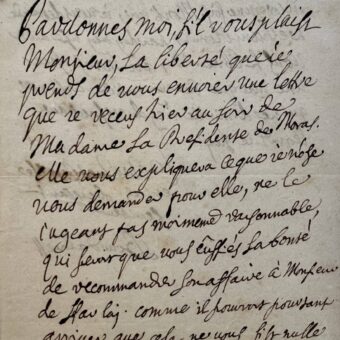 Pardonnes moi, s'il vous plaist
Monsieur, La liberté que ie
prends de vous envoier une lettre
que ie receus hier au soir de
Madame La Presidente de Moras.
elle vous expliquera ce que ie n'ose
vous demander pour elle, ne le
iugeant pas moimeme raisonnable,
qui seroit que vous eussiés la bonté
de recommander son affaire à Monsieur
de Harlai. comme il pourroit pourtant
arriver que cela ne vous fist nulle